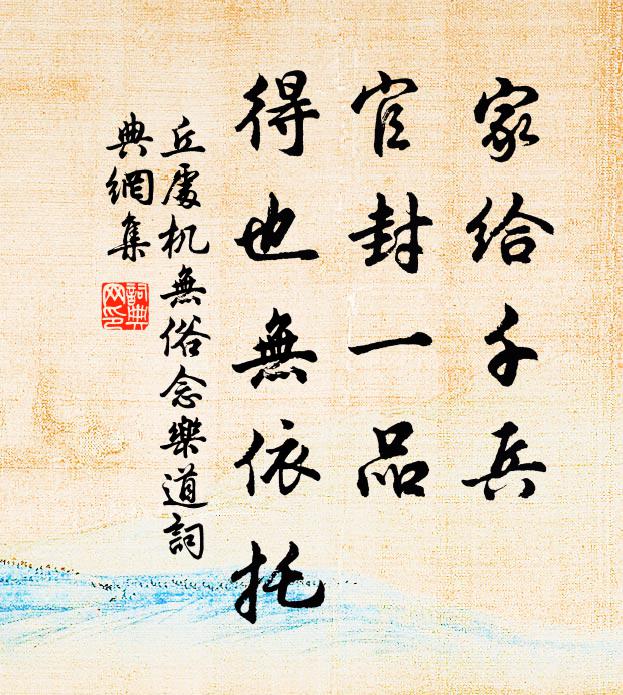 家給千兵
官封一品
得也無依托
丘處机無俗念樂道詞
典網集
詞典
网印